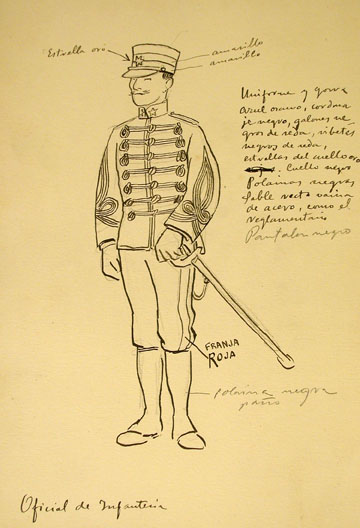 Estrella oro
amarillo
amarillo
M
Uniforme y gorra
azul oscuro, cordona
je negro, galones ne
gros de seda, ribetes
negros de seda,
estrellas del cuello oro
Cuello negro
Polainas negras
Sable recto vaina
de acero, como el
reglamentario
Pantalon negro
FRANJA
ROJA
polaina negra
paño
Oficial de Infanteria